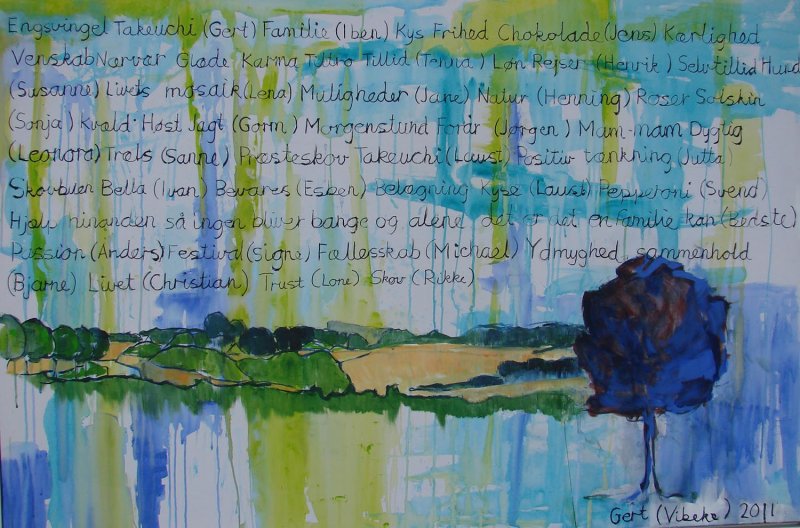 Engsvingel Takeuchi (Gert) Familie (Iben) Kys Frihed Chokolade (Jens) Kærlighed
Venskab Nærvær Glæde Karma Tiltro Tillid (Trina) Løn Rejser (Henrik) Selvtillid Hund
(Susanne) Livets mosaik (Lena) Muligheder (Jane) Natur (Henning) Roser Solskin
(Sonja) Kvæld Høst Jagt (Gorm) Morgenstund Forår (Jørgen) Mam-mam Dygtig
(Leonora) Trols (Sanne) Præsteskov Takeuchi (Laust) Positiv tænkning (Jutta)
Skovbuen Bella (Ivan) Bevares (Esben) Belægning Kyse (Laust) Pepperoni (Svend)
Hjælp hinanden så ingen bliver bange og alene det er det en familie kan (Bedste)
Passion (Anders) Festival (Signe) Fællesskab (Michael) Ydmyghed, sammenhold
(Bjarne) Livet (Christian) Trust (Lone) Skov (Rikke)
Gert (Vibeke) 2011